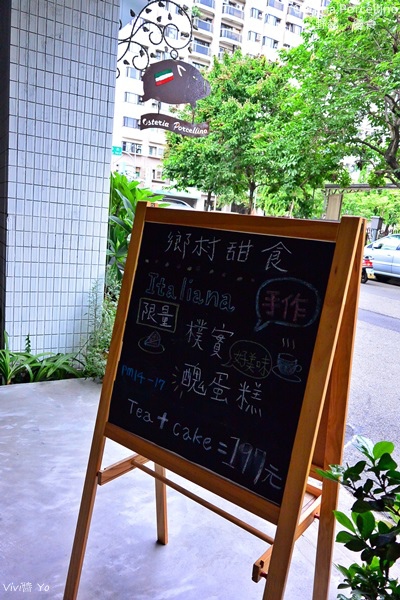 Osteria Porcellino
鄉村甜食
Italiana
手作
限量
樸實
好美味
PM14-17
醜蛋糕
Tea + cake = 197元
Vivi醬 Yo